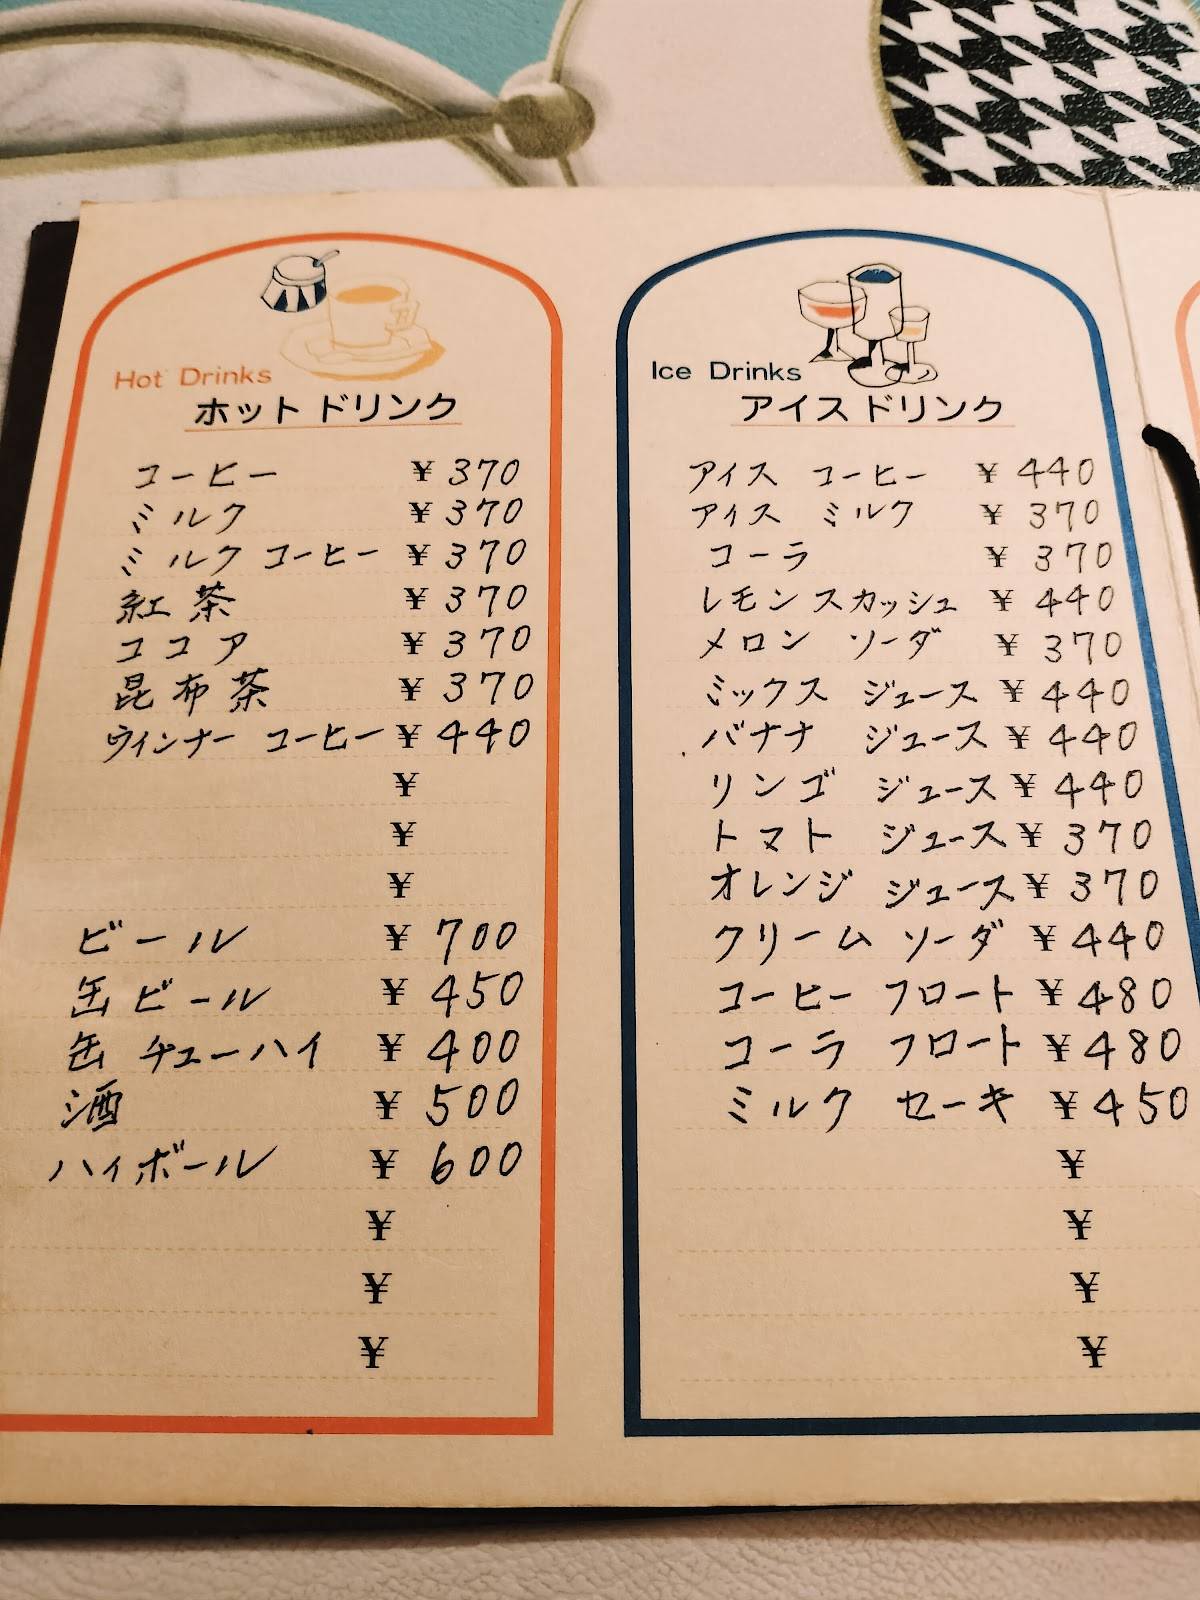 Hot Drinks
ホットドリンク
コーヒー ¥370
ミルク ¥370
ミルクコーヒー ¥370
紅茶 ¥370
ココア ¥370
昆布茶 ¥370
ウインナーコーヒー ¥440
¥
¥
¥
ビール ¥700
缶ビール ¥450
缶チューハイ ¥400
酒 ¥500
ハイボール ¥600
¥
¥
¥
Ice Drinks
アイスドリンク
アイス コーヒー ¥440
アイス ミルク ¥370
コーラ ¥370
レモンスカッシュ ¥440
メロン ソーダ ¥370
ミックス ジュース ¥440
バナナ ジュース ¥440
リンゴ ジュース ¥440
トマト ジュース ¥370
オレンジ ジュース ¥370
クリーム ソーダ ¥440
コーヒー フロート ¥480
コーラ フロート ¥480
ミルク セーキ ¥450
¥
¥
¥
¥